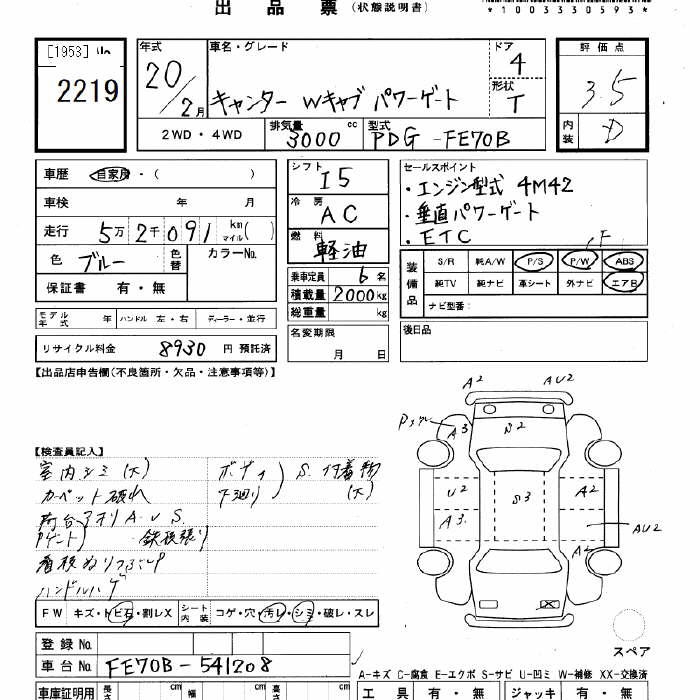 出品票 (状態説明書)
*1003330593*
[1953] lla
2219
年式
20/2月
車名・グレード
キャンター Wキャブ パワーゲート
ドア
4
形状
T
評価点
3.5
内装
D
2WD・4WD
排気量
3000 cc
型式
PDG-FE70B
車歴 自家用・( )
車検 年 月
走行 5万2千091 km マイル( )
色 ブルー 色替 カラーNo.
保証書 有・無
シフト
I5
冷房
AC
燃料
軽油
乗車定員 6名
積載量 2000kg
総重量 kg
セールスポイント
・エンジン型式 4M42
・垂直パワーゲート
・ETC
装備品
S/R 純A/W P/S P/W ABS
純TV 純ナビ 革シート 外ナビ エアB
ナビ型番:
モデル年式 年 ハンドル 左・右 ディーラー・並行
リサイクル料金 8930円 預託済
名変期限
月 日
後日品
【出品店申告欄(不良箇所・欠品・注意事項等)】
【検査員記入】
室内シミ(大)
カーペット破れ
ボディ
下廻り
S. 付着物
(大)
荷台 アオリ A.U S.
鉄板張り
ハンドルハゲ
A2
AU2
A3
S2
U2
S3
A2
A3
AU2
A2
FW キズ・トビ石・割レX シート内装 コゲ・穴・汚レ・シミ・破レ・スレ
登録No.
車台No. FE70B-541208
スペア
A-キズ C-腐食 E-エクボ S-サビ U-凹ミ W-補修 XX-交換済
車庫証明用 長さ cm 幅 cm 高さ cm
工具 有・無 ジャッキ 有・無